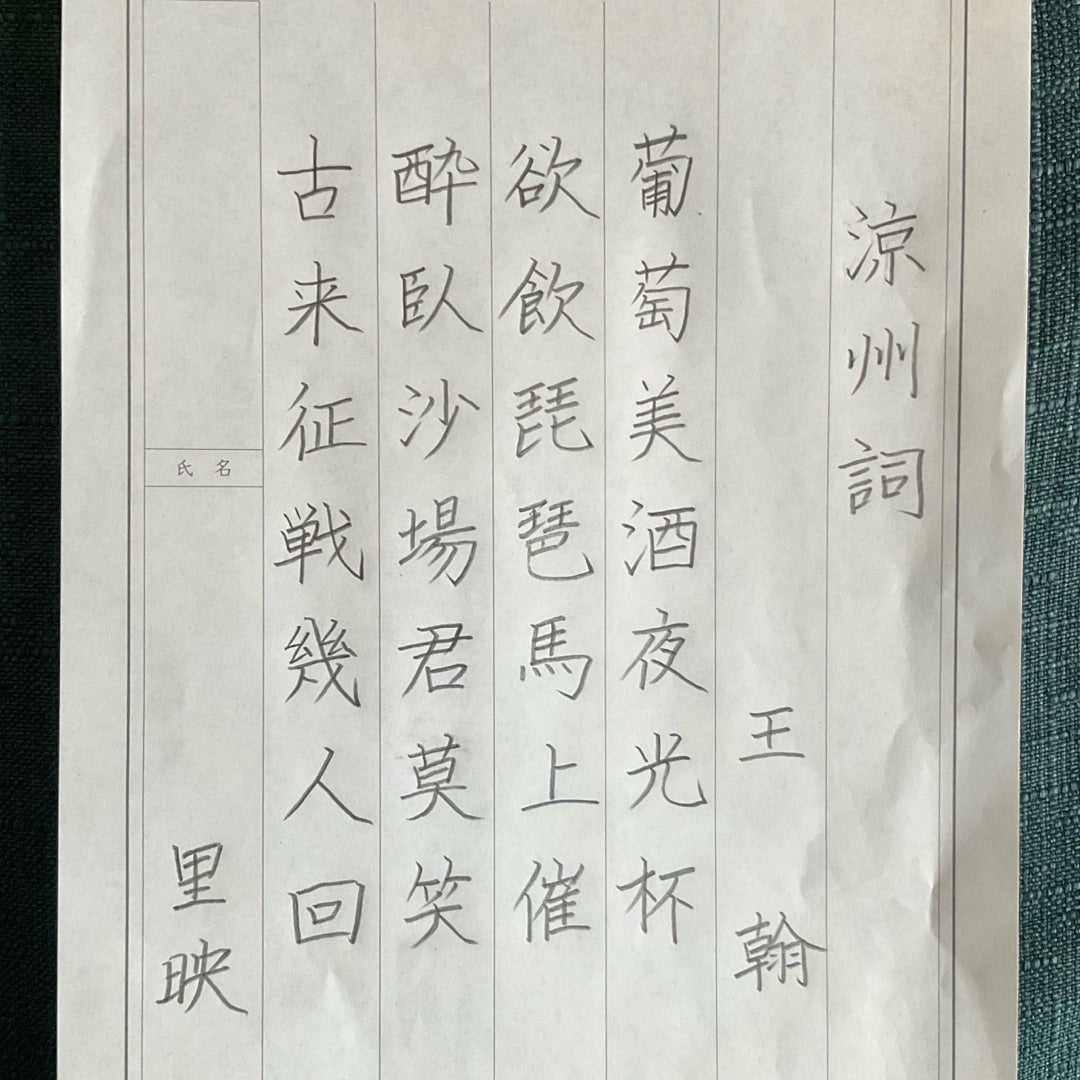 涼州詞
王翰
葡萄美酒夜光杯
欲飲琵琶馬上催
酔臥沙場君莫笑
古来征戦幾人回
氏名
里映